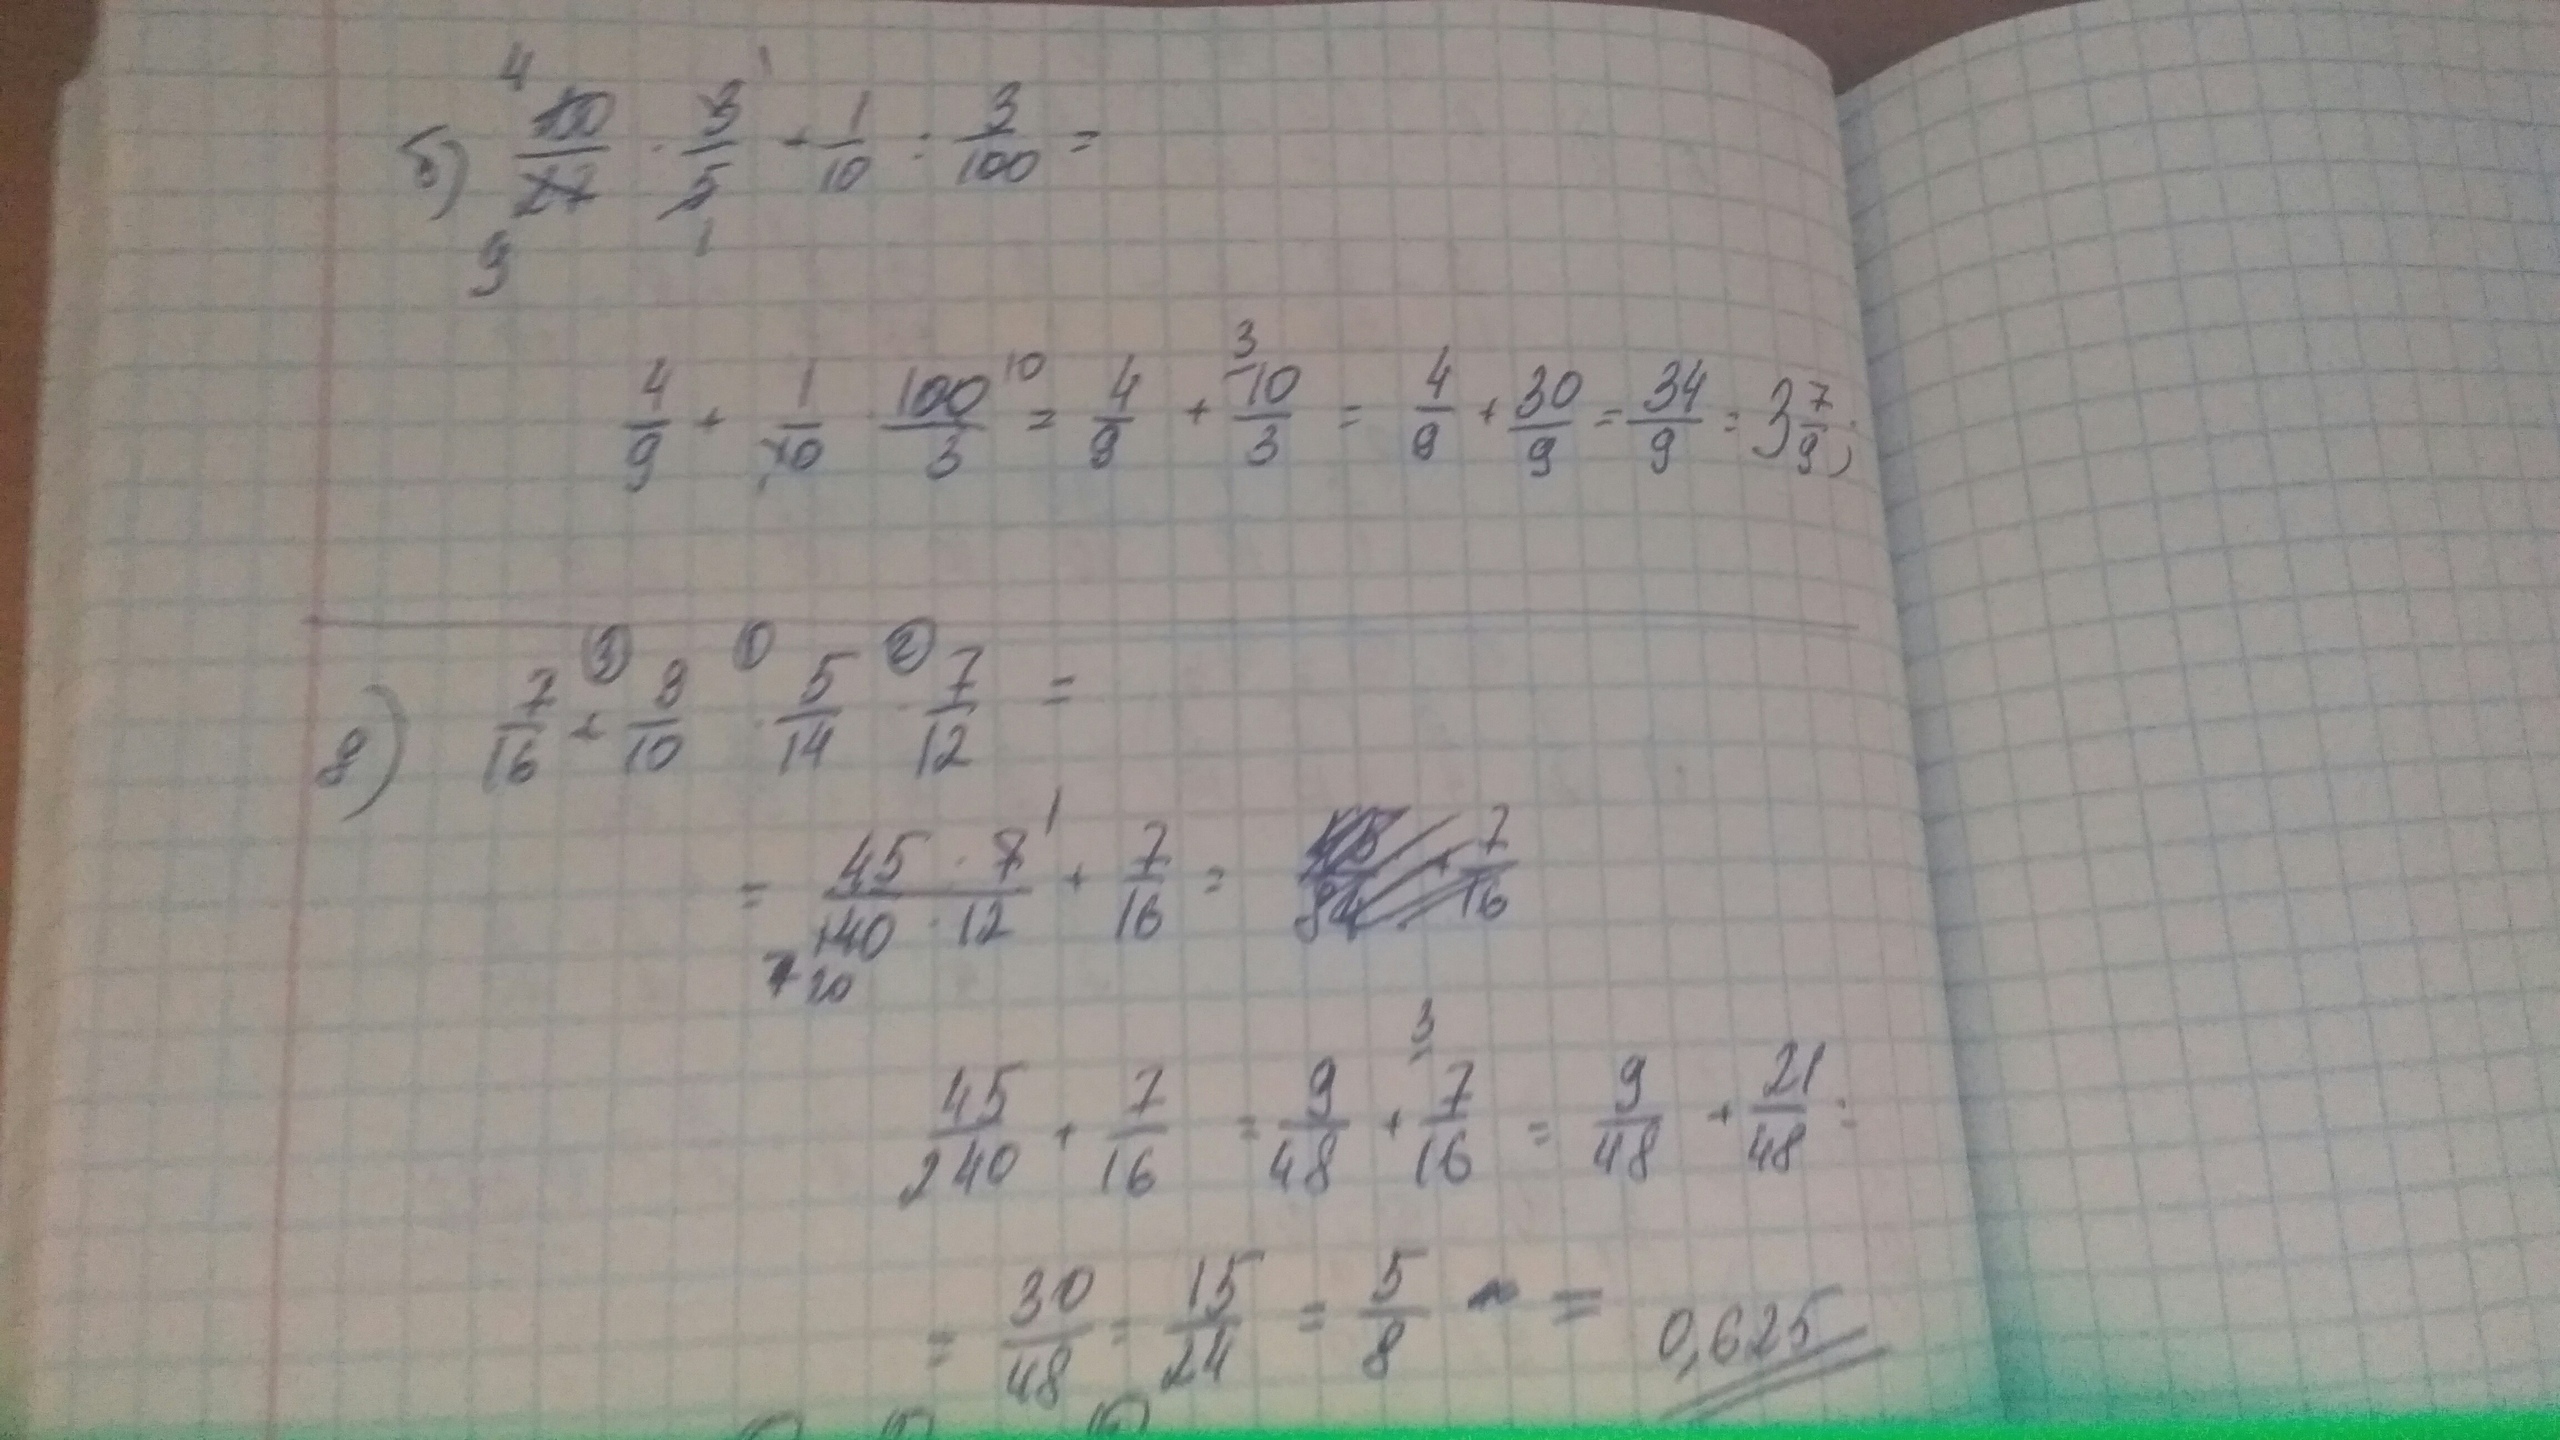 4 1
б) 10/27 · 3/5 + 1/10 : 3/100 =
9 1
4/9 + 1/10 · 100/3 10 = 4/9 + 3 10/3 = 4/9 + 30/9 = 34/9 = 3 7/9;
③ ① ②
8) 7/16 + 3/10 · 5/14 · 7/12 =
= 45 · 7 1/140 · 12 + 7/16 =
20
45/240 + 7/16 = 9/48 + 3 7/16 = 9/48 + 21/48 =
= 30/48 = 15/24 = 5/8 = 0,625